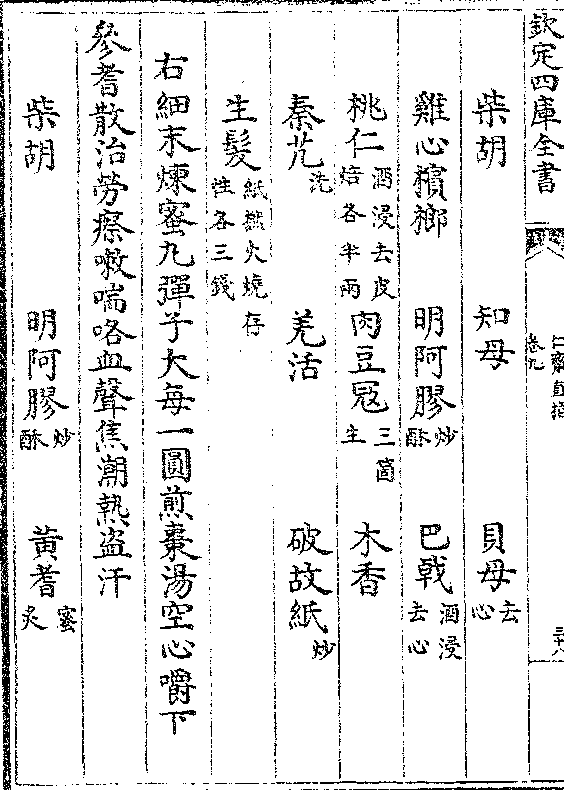 欽定四庫全書
仁齋直指
卷九
三十八
柴胡　知母　貝母去心
雞心檳榔　明阿膠炒酥　巴戟酒浸去心
桃仁酒浸去皮焙各半兩　肉豆冦三箇主　木香
秦艽洗　羌活　破故紙炒
生髮紙撚火燒存性各三錢
右細末煉蜜丸彈子大每一圓煎棗湯空心嚼下
參耆散治勞瘵嗽喘咯血聲焦潮熱盜汗
柴胡　明阿膠炒酥　黃耆蜜炙